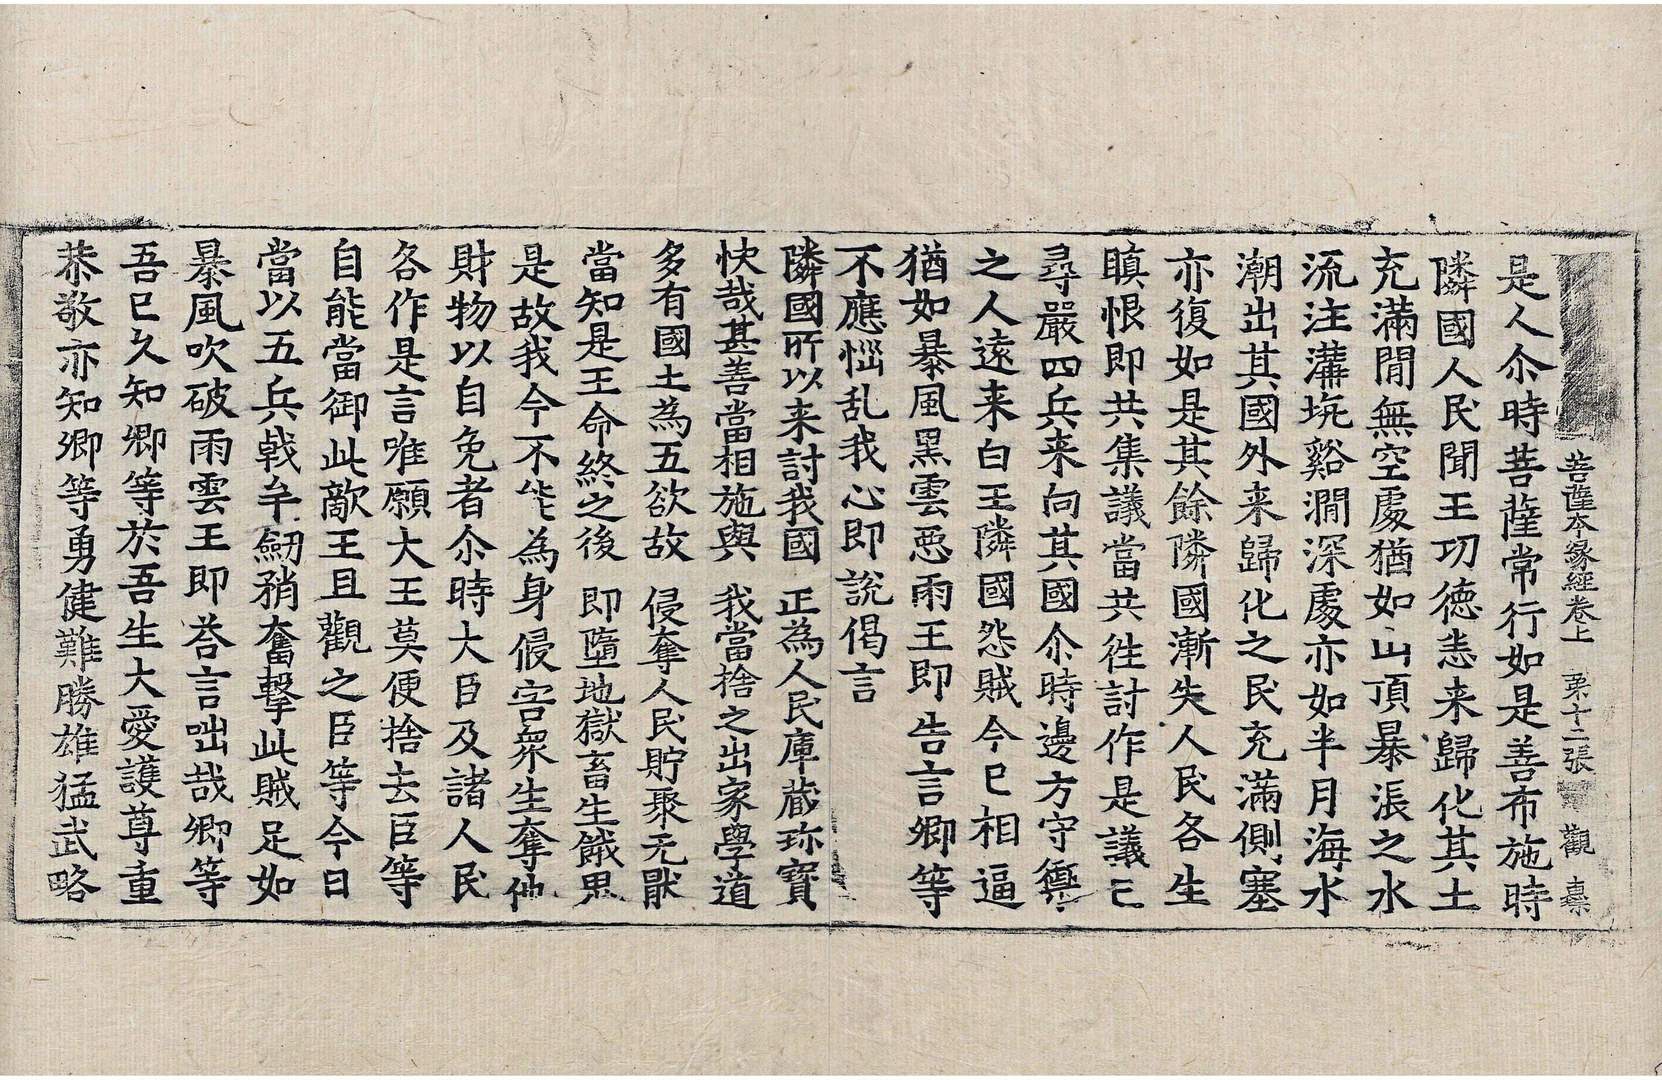 菩薩本縁經卷上　第十二張　觀
是人尒時菩薩常行如是善布施時
隣國人民聞王功徳恚来歸化其土
充滿閒無空處猶如山頂暴漲之水
流注溝坑谿澗深處亦如半月海水
潮出其國外来歸化之民充滿側塞
亦復如是其餘隣國漸失人民各生
瞋恨即共集議當共徃討作是議已
尋嚴四兵来向其國尒時邊方守禦
之人逺来白王隣國怨賊今已相逼
猶如暴風黑雲惡雨王即告言卿等
不應惱乱我心即說偈言
隣國所以来討我國　正為人民庫藏珎寶
快哉甚善當相施與　我當捨之出家學道
多有國土為五欲故　侵奪人民貯聚无猒
當知是王命終之後　即墮地獄畜生餓鬼
是故我今不能為身侵害衆生奪他
財物以自免者尒時大臣及諸人民
各作是言唯願大王莫便捨去臣等
自能當御此敵王且觀之臣等今日
當以五兵戟牟劒矟奮擊此賊足如
暴風吹破雨雲王即荅言咄哉卿等
吾已久知卿等於吾生大愛護尊重
恭敬亦知卿等勇健難勝雄猛武略